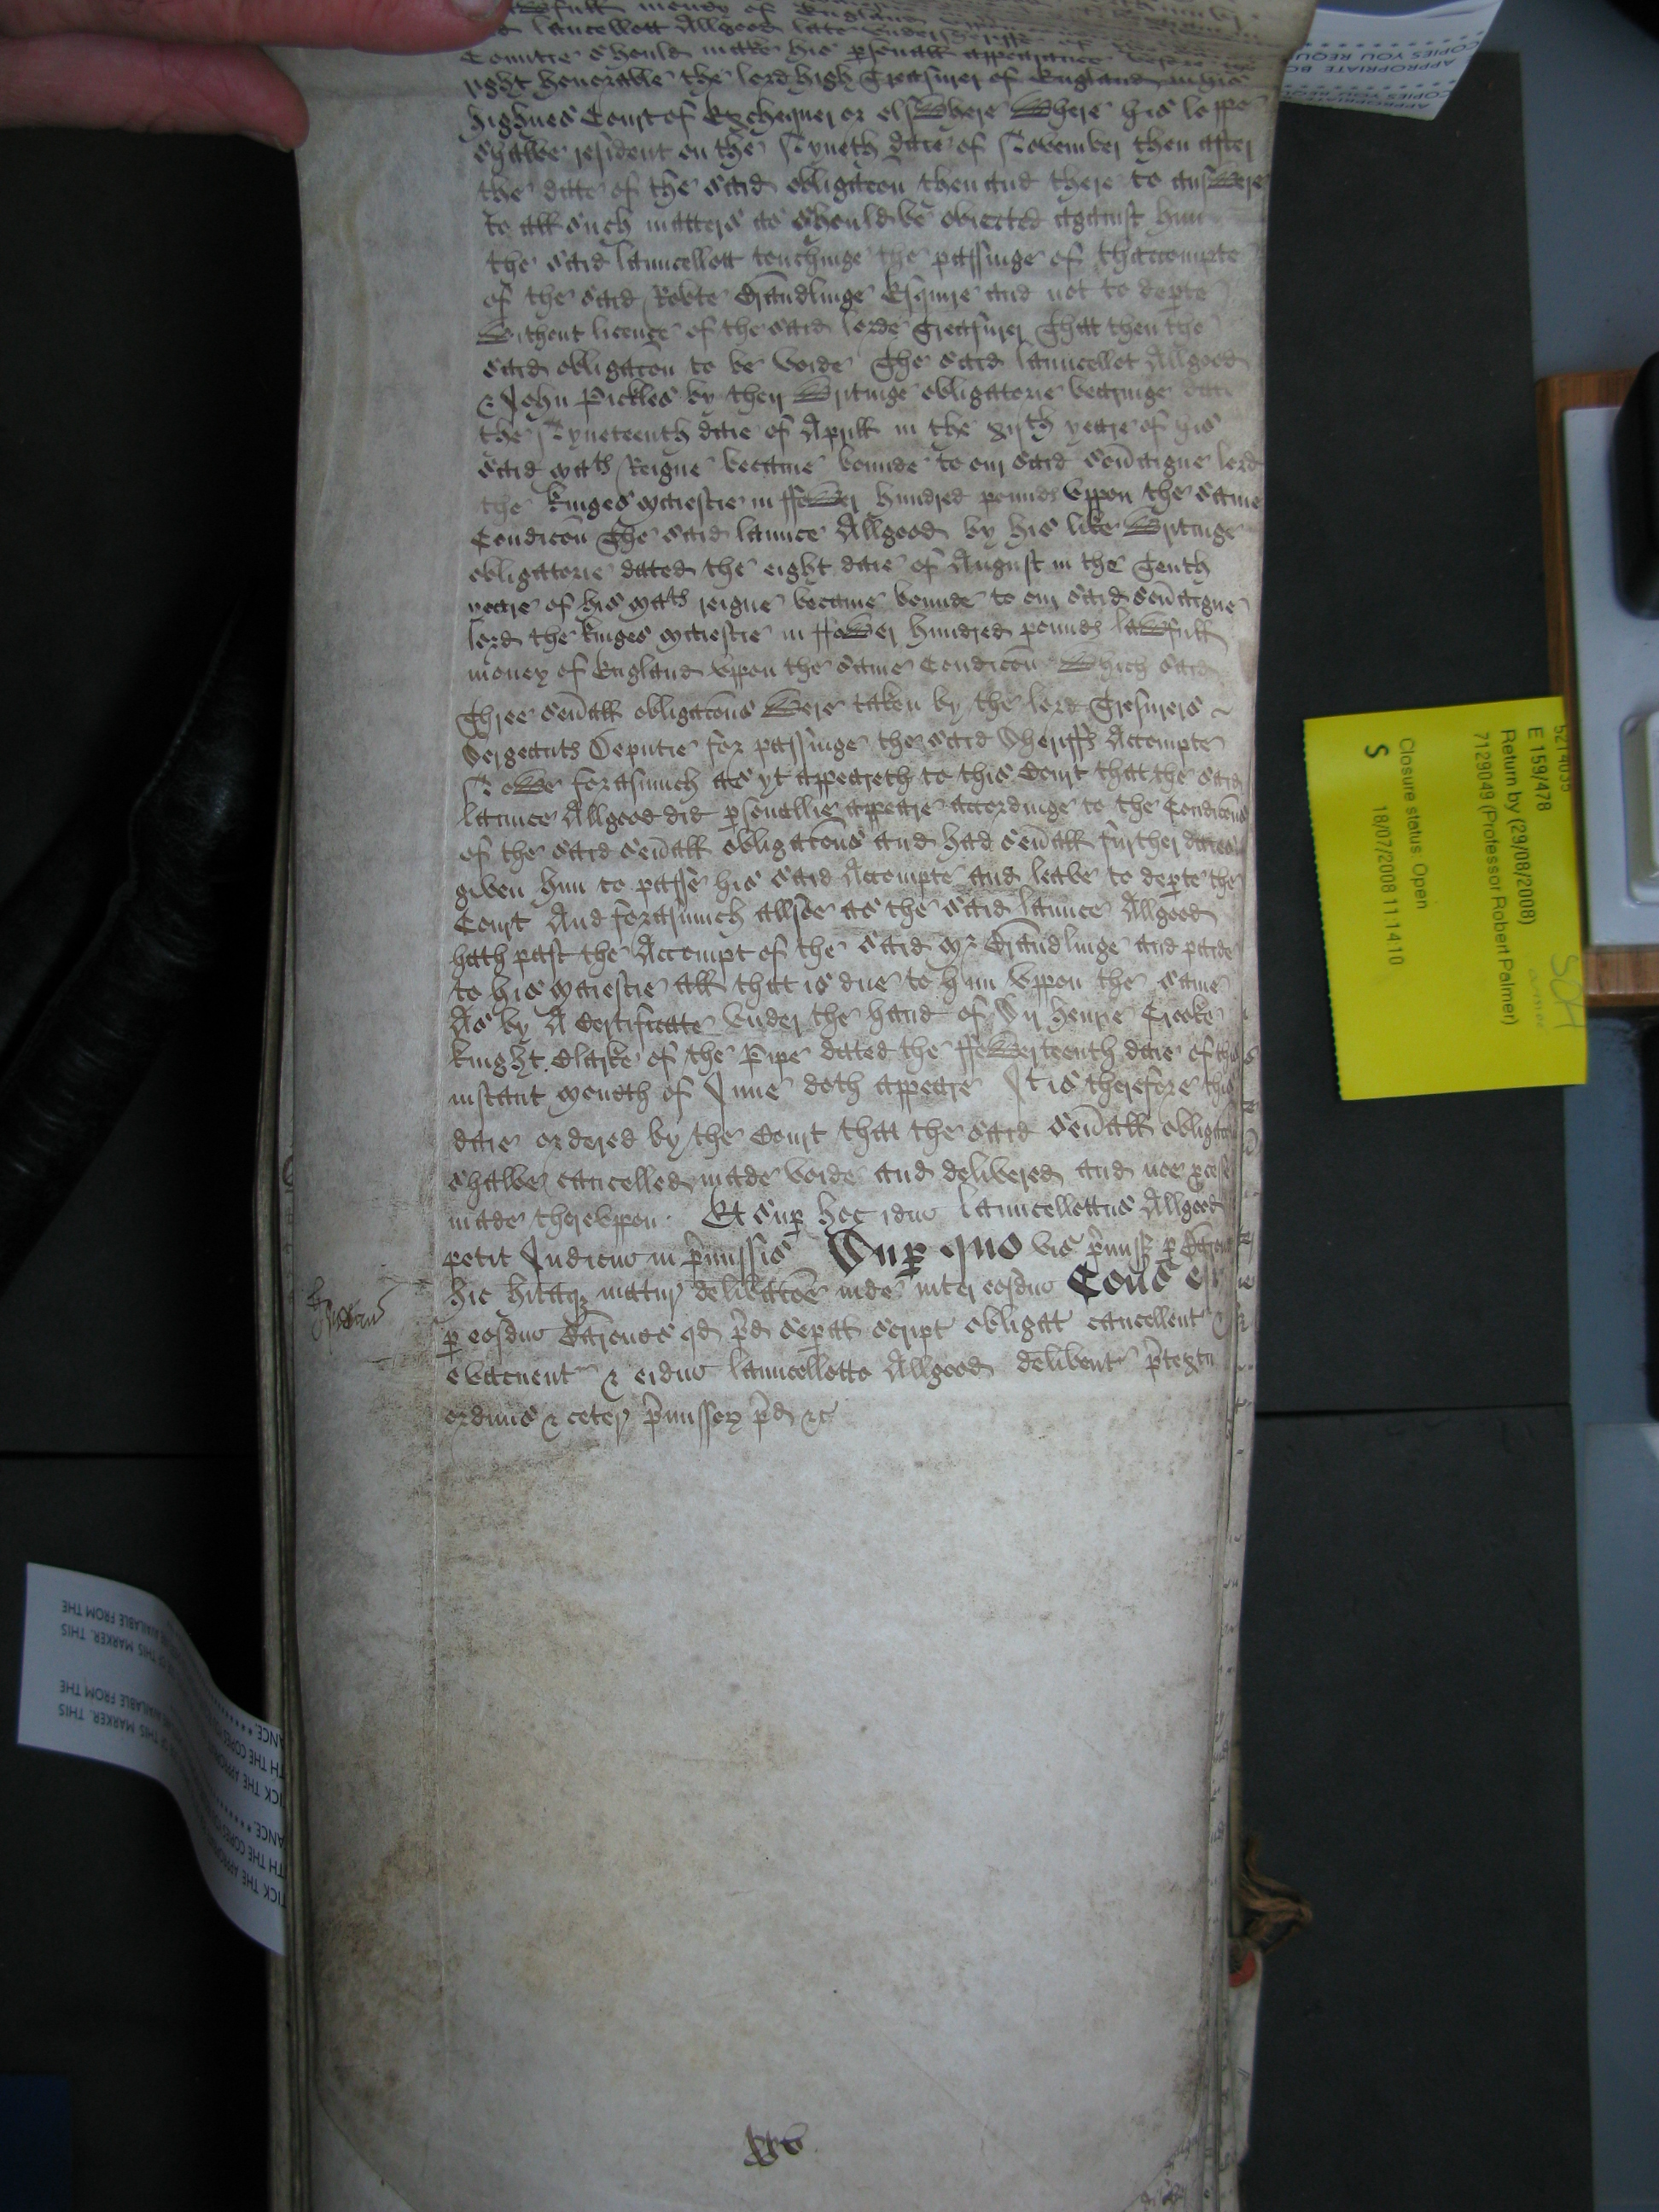 lawfull money of England
Lancellott Allgood late undersheriffe of
Countie should make his psonall appearance before the
right honorable the lord high Treasurer of England in his
highnes Court of Exchequer or elswhere where his lopps
shalbe resident on the Nyneth daie of November then after
the date of the said obligacon then and there to answere
to all such matters as should be obiected against him
the said Lancellott touchinge the passinge of thaccompte
of the said Robte Brandlinge Esquire and not to depte
without licence of the said lorde Treasurer That then the
said obligacon to be voide The said Lancellot Allgood
& John Pickles by their writinge obligatorie bearinge date
the Nyneteenth daie of Aprill in the yeare of his
said Mats Reigne became bounde to our said Sovaigne lord
the kinges Maiestie in ffower hundred pounds uppon the same
Condicon The said Lance Allgood by his like writinge
obligatorie dated the eight daie of August in the Tenth
yeare of his Mats reigne became bounde to our said Sovaigne
lord the kinges Maiestie in ffower hundred pounds lawfull
money of England uppon the same Condicon Which said
Three sevall obligacons were taken by the lord Tresurers
Sergeants Deputie for passinge the said Sheriffs Accompte
Nowe forasmuch as yt appeareth to this Court that the said
Lance Allgood did psonallie appeare accordinge to the Condicons
of the said sevall obligacons and had sevall further daies
given him to passe his said Accompte and leave to depte the
Court And forasmuch allsoe as the said Lance Allgood
hath past the Accompt of the said Mr Brandlinge and paide
to his Maiestie all that is due to him uppon the same
As by A Certificate under the hand of Sir Henrie Crooke
knight Clarke of the Pipe dated the ffowerteenth daie of this
instant Moneth of June doth appeare It is therefore this
daie ordered by the Court that the said sevall obligacons
shalbe cancelled made voide and delivered and noe pcess
made thereuppon. Et sup hoc idm Lancellottus Allgood
petit Judicm in pmissis Sup quo vis pmiss p Barones
hic hitaqz matur delibacoe inde inter eosdm Cons est
p eosdm Barones qd pd sepal script obligat cancellent &
evacuent & eidm Lancellotto Allgood delibent ptextu
ordinis & ceter pmissor pd &c
COPIES YOU REQU
APPROPRIATE BO
5214035
E 159/478
Return by (29/08/2008)
7129049 (Professor Robert Palmer)
Closure status: Open
18/07/2008 11:14:10
S
THIS MARKER. THIS
AVAILABLE FROM THE
THIS MARKER. THIS
AVAILABLE FROM THE
TICK THE APPRO